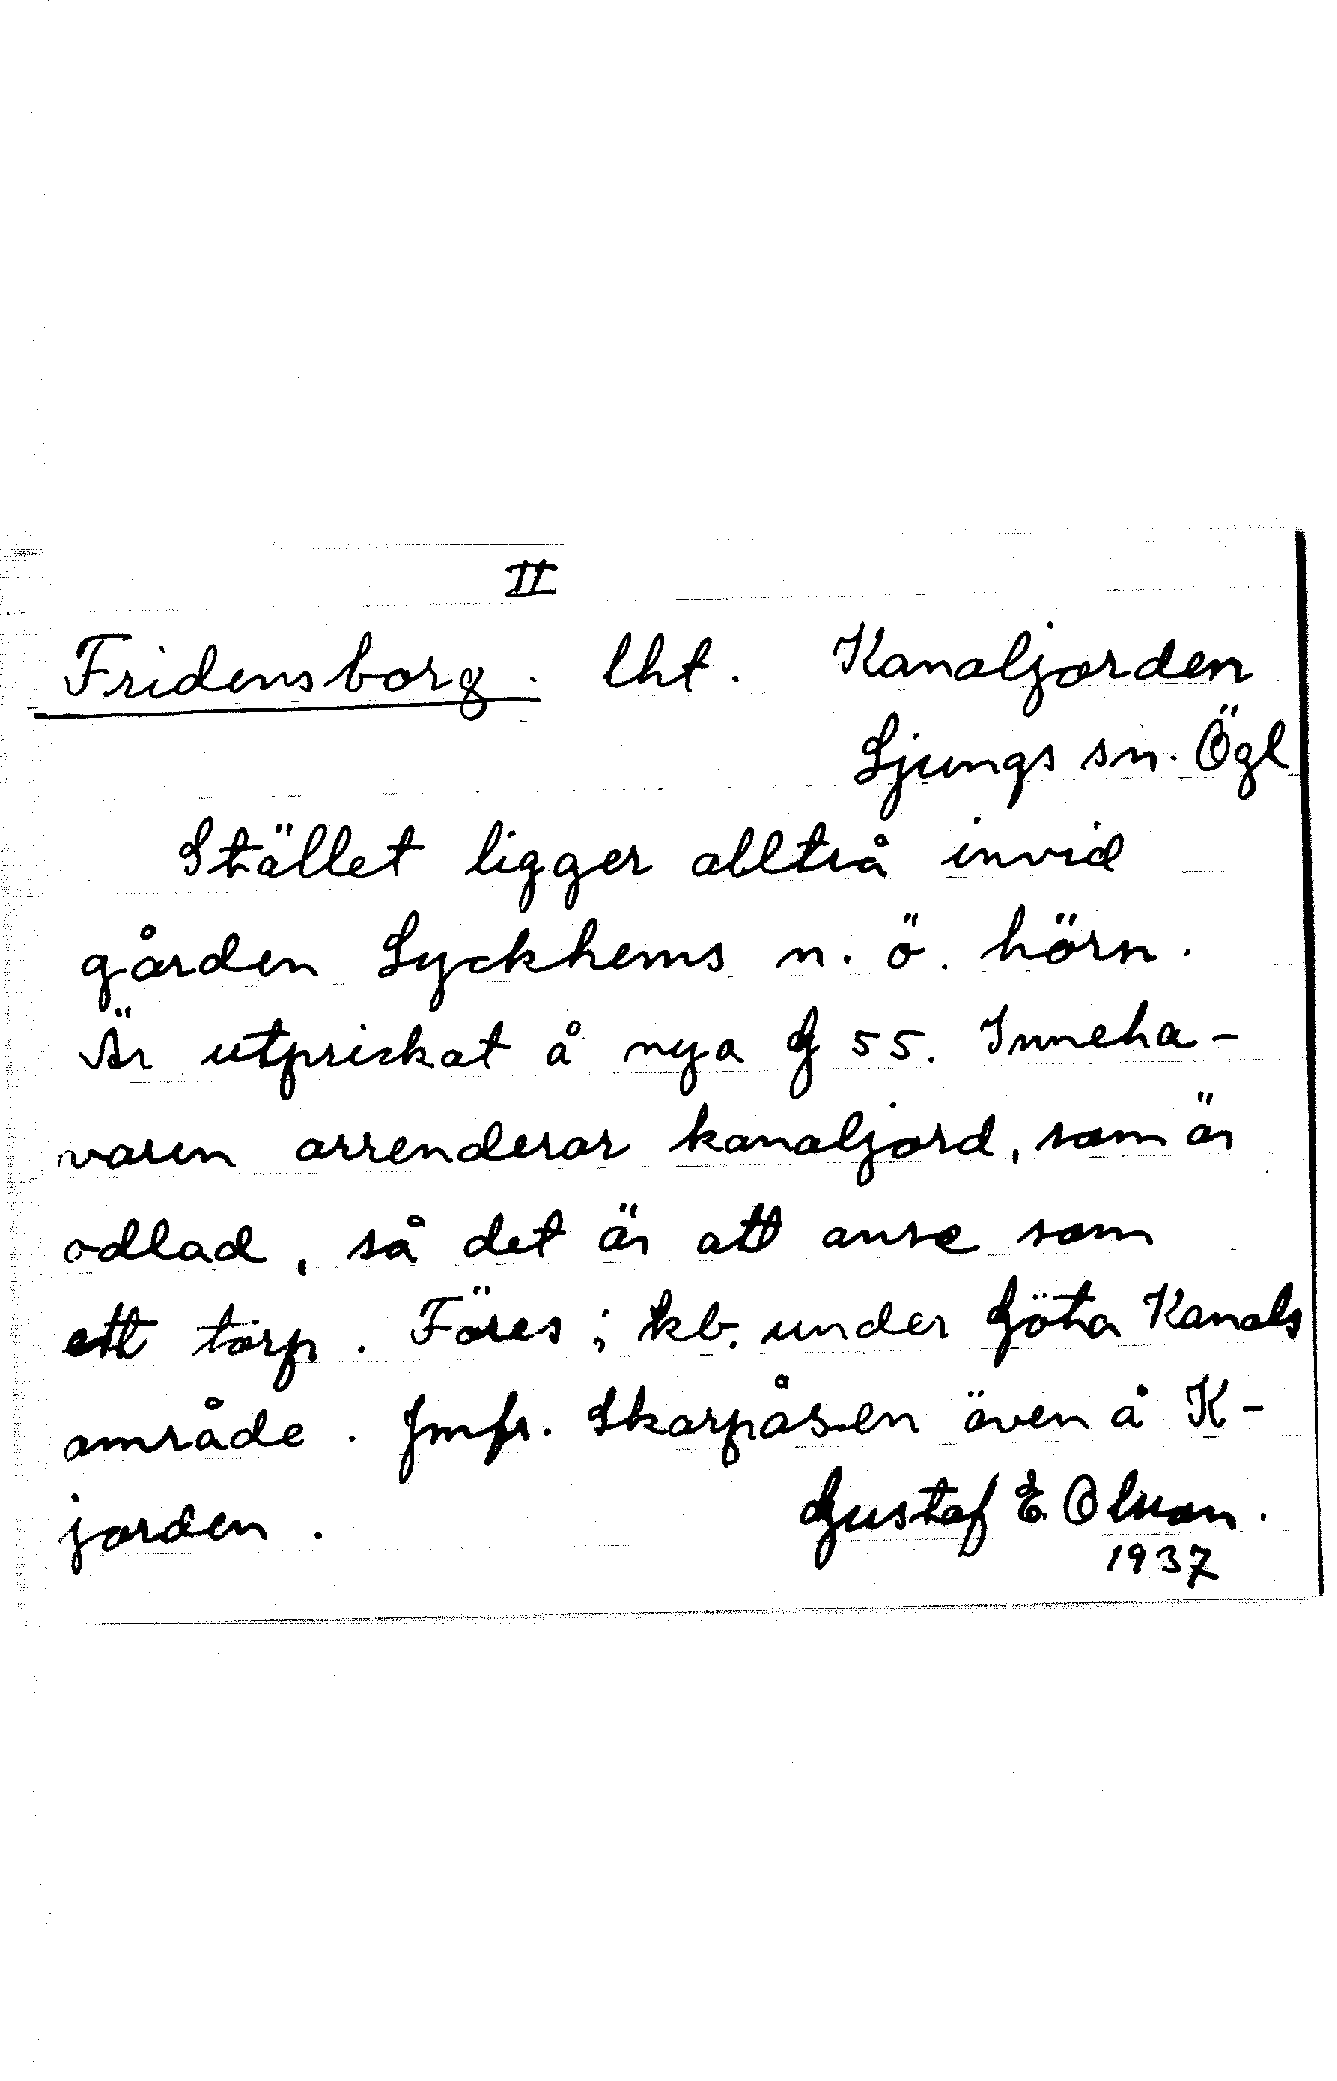 II
Fridensborg. lht. Kanaljorden
Ljungs sn. Ögl
Stället ligger alltså invid
gården Lyckhems n. ö. hörn.
Är utprickat å nya G 55. Inneha-
varen arrenderar kanaljord, som är
odlad, så det är att anse som
ett torp. Föres i kb. under Göta Kanals
område. Jmfr. Skarpåsen även å K-
jorden.
Gustaf E. Olsson.
1937